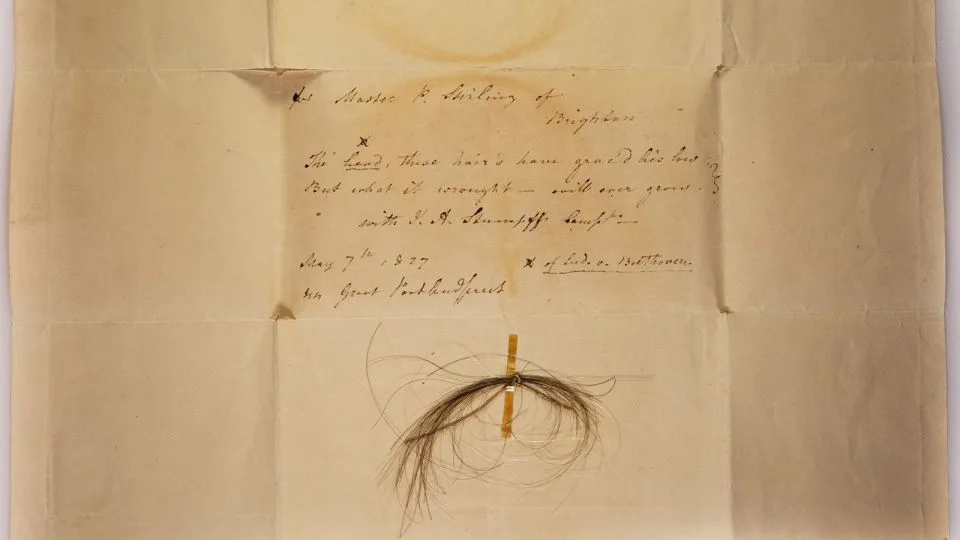 for Master P. Stirling of
Brighton
x
The head, these hair's have grac'd lies low
But what it wrought — will ever grow.
with J. A. Stumpff's Compts.
May 7th, 1827
x of Lud. v. Beethoven.
Great Portland Street